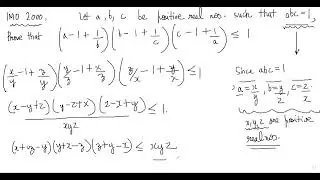 IMO 2000. Let a, b, c be positive real nos. such that abc = 1,
prove that (a - 1 + 1/b)(b - 1 + 1/c)(c - 1 + 1/a) ≤ 1
(x/y - 1 + z/y)(y/z - 1 + x/z)(z/x - 1 + y/x) ≤ 1
(x-y+z)(y-z+x)(z-x+y) ≤ 1.
xyz
(x+z-y)(y+x-z)(z+y-x) ≤ xyz
Since abc = 1
a = x/y, b = y/z, c = z/x
x, y, z are positive
real nos.